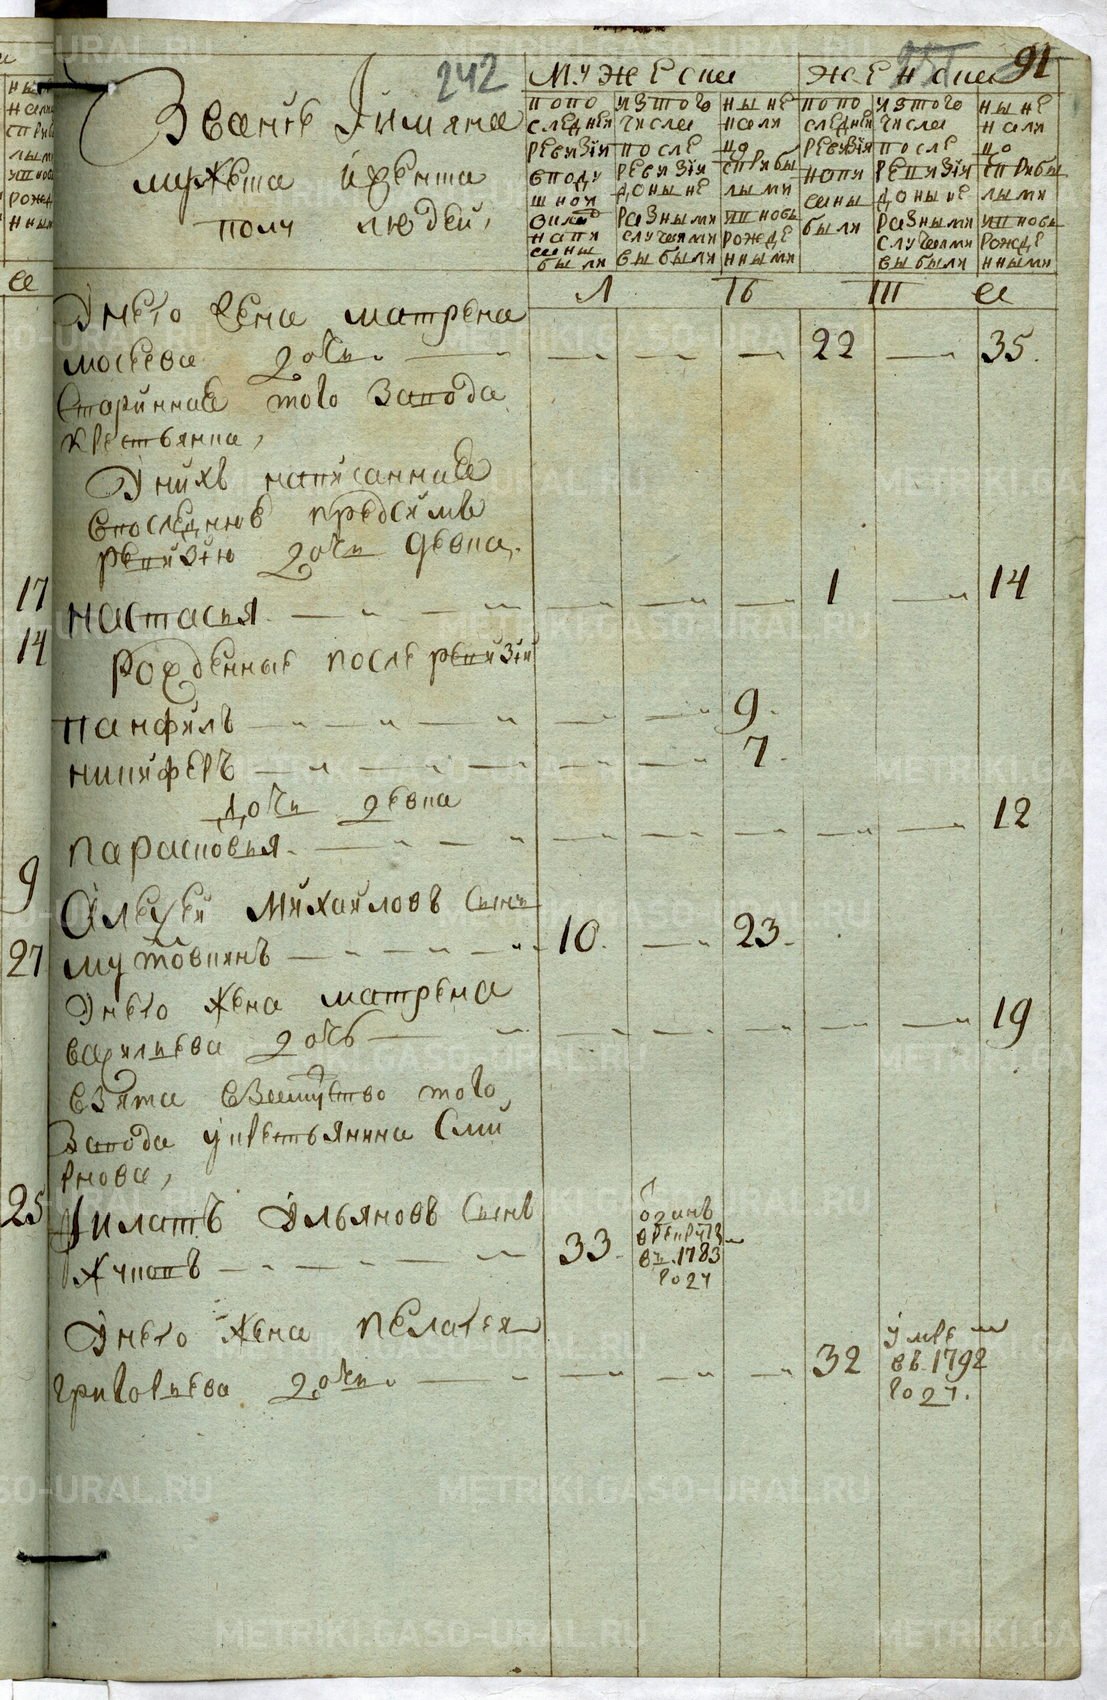 242
251
91
Званiе Iимяна
мужеска iженска
полу людей,
мужески
женски
попо
следней
ревизiи
вподу
шной
напи
саны
были
изтого
числа
после
ревизiи
доныне
разными
случаями
выбыли
ныне
нали
цо
сприбы
лыми
ипновь
рожде
нными
попо
следней
ревизiи
напи
саны
были
изтого
числа
после
ревизiи
доныне
разными
случаями
выбыли
ныне
нали
цо
сприбы
лыми
ипновь
рожде
нными
Унего жена матрена
мосеева дочь 22 35.
Стариннаѧ того завода
крестьянка,
Унихъ написаннаѧ
впоследнюю предсимъ
ревизiю дочь девка.
настасья 1 14
Рожденные после ревизiй
панфилъ 9.
никиферъ 7.
дочь девка
парасковья 12
Алексей Михайловъ сынъ
мутовкинъ 10. 23.
Унего жена матрена
васильева дочь 19
взята взамужство того
завода укрестьянина Сми
рнова,
Филатъ Ульяновъ сынъ
жуковъ 33. въ 1783
году
Унего жена пелагея
григорьева дочь 32 умре
въ 1792
году.
17
14
9
27
25
METRIKI.GASO-URAL.RU